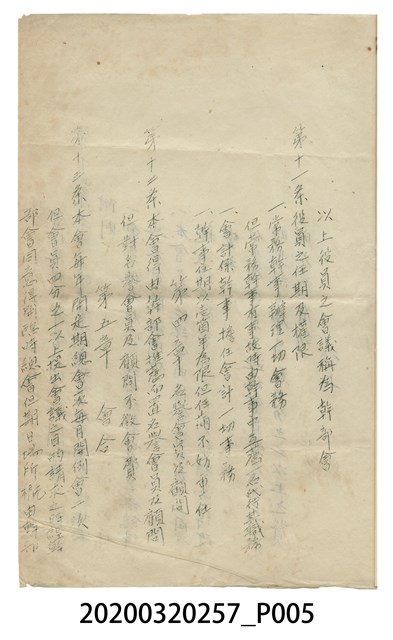 以上役員之會議稱為幹部會
第十一條役員之任期及權限
一、常務幹事辦理一切會務
但常務幹事有事故時由幹事中互選一名代行其職務
一、會計係幹事擔任會計一切事務
一、幹事任期以壹箇年為限但任期不妨重任
第四章 名譽會員及顧問
第十二條本會得由幹部會推薦而置名譽會員及顧問
但對名譽會員及顧問不徵會費
第五章 會合
第十三條本會每年開定期總會一次每月開例會一次
但會員四分之一以上提出會議之目的請
部會同意得開臨時總會但期日場所概由幹部
20200320257_P005